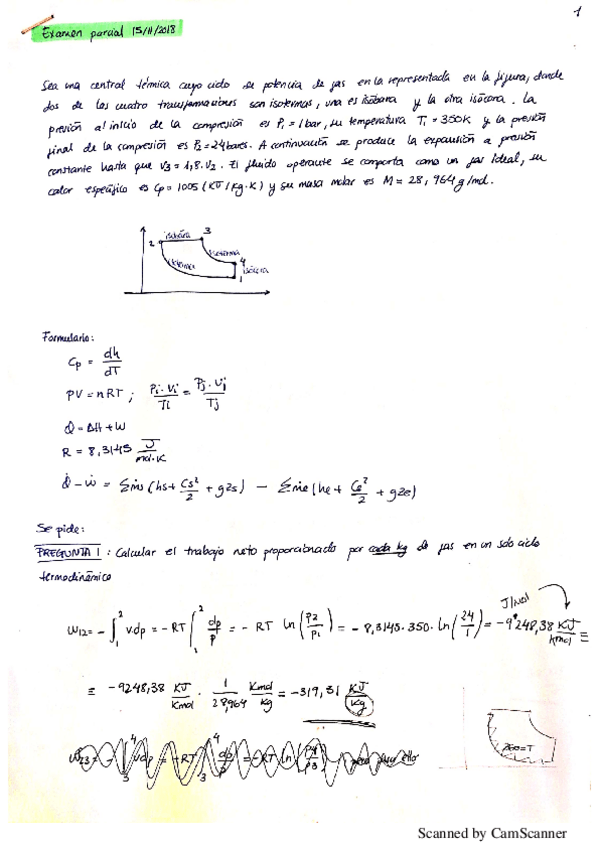 1
Examen parcial 15/11/2018
Sea una central térmica cuyo ciclo de potencia de gas en la representada en la figura, donde
dos de las cuatro transformaciones son isotermas, una es isóbara y la otra isócora. La
presión al inicio de la compresión es P₁ = 1 bar, su temperatura T₁ = 350K y la presión
final de la compresión es P₂ = 24 bares. A continuación se produce la expansión a presión
constante hasta que V₃ = 1,8·V₂. El fluido operante se comporta como un gas ideal, su
calor específico es Cp = 1005 (KJ/Kg·K) y su masa molar es M = 28,964 g/mol.
isobára
2
3
isoterma
isoterma
4
isócora
1
Formulario:
Cp = dh/dT
PV = nRT ; Pi·Vi/Ti = Pj·Vj/Tj
Q = ΔH + W
R = 8,3145 J/mol·K
Q̇ - Ẇ = Σṁs (hs + Cs²/2 + gzs) - Σṁe (he + Ce²/2 + gze)
Se pide:
PREGUNTA 1: Calcular el trabajo neto proporcionado por cada kg de gas en un solo ciclo
termodinámico
J/mol
W12 = - ∫₁² v·dp = - RT ∫₁² dp/p = - RT ln (P2/P1) = - 8,3145·350·ln (24/1) = -9248,38 KJ/Kmol ≡
≡ -9248,38 KJ/Kmol · 1/28,964 Kmol/Kg = -319,31 KJ/Kg